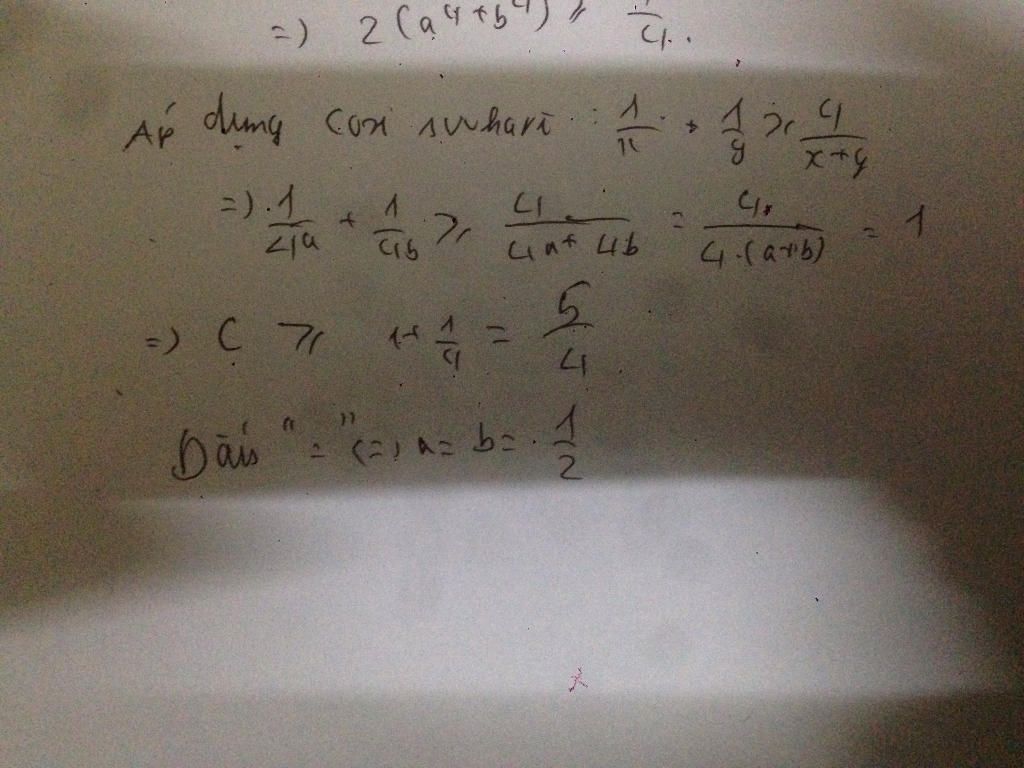 =) 2(a⁴+b⁴) ≥ 1/4.
Áp dụng Coxi svvhart : 1/x + 1/y ≥ 4/(x+y)
=) 1/4a + 1/4b ≥ 4/(4a+4b) = 4/(4.(a+b)) = 1
=) C ≥ 1+1/4 = 5/4
Dấu "=" (=) a= b= 1/2